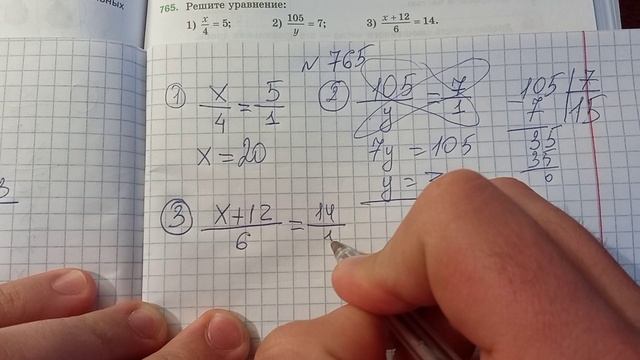 765. Решите уравнение:
1) x/4 = 5; 2) 105/y = 7; 3) (x + 12)/6 = 14.
N 765
① x/4 = 5/1
x = 20
② 105/y = 7/1
7y = 105
y =
105 | 7
- 7 | 15
35
35
0
③ (x+12)/6 = 14/1
3